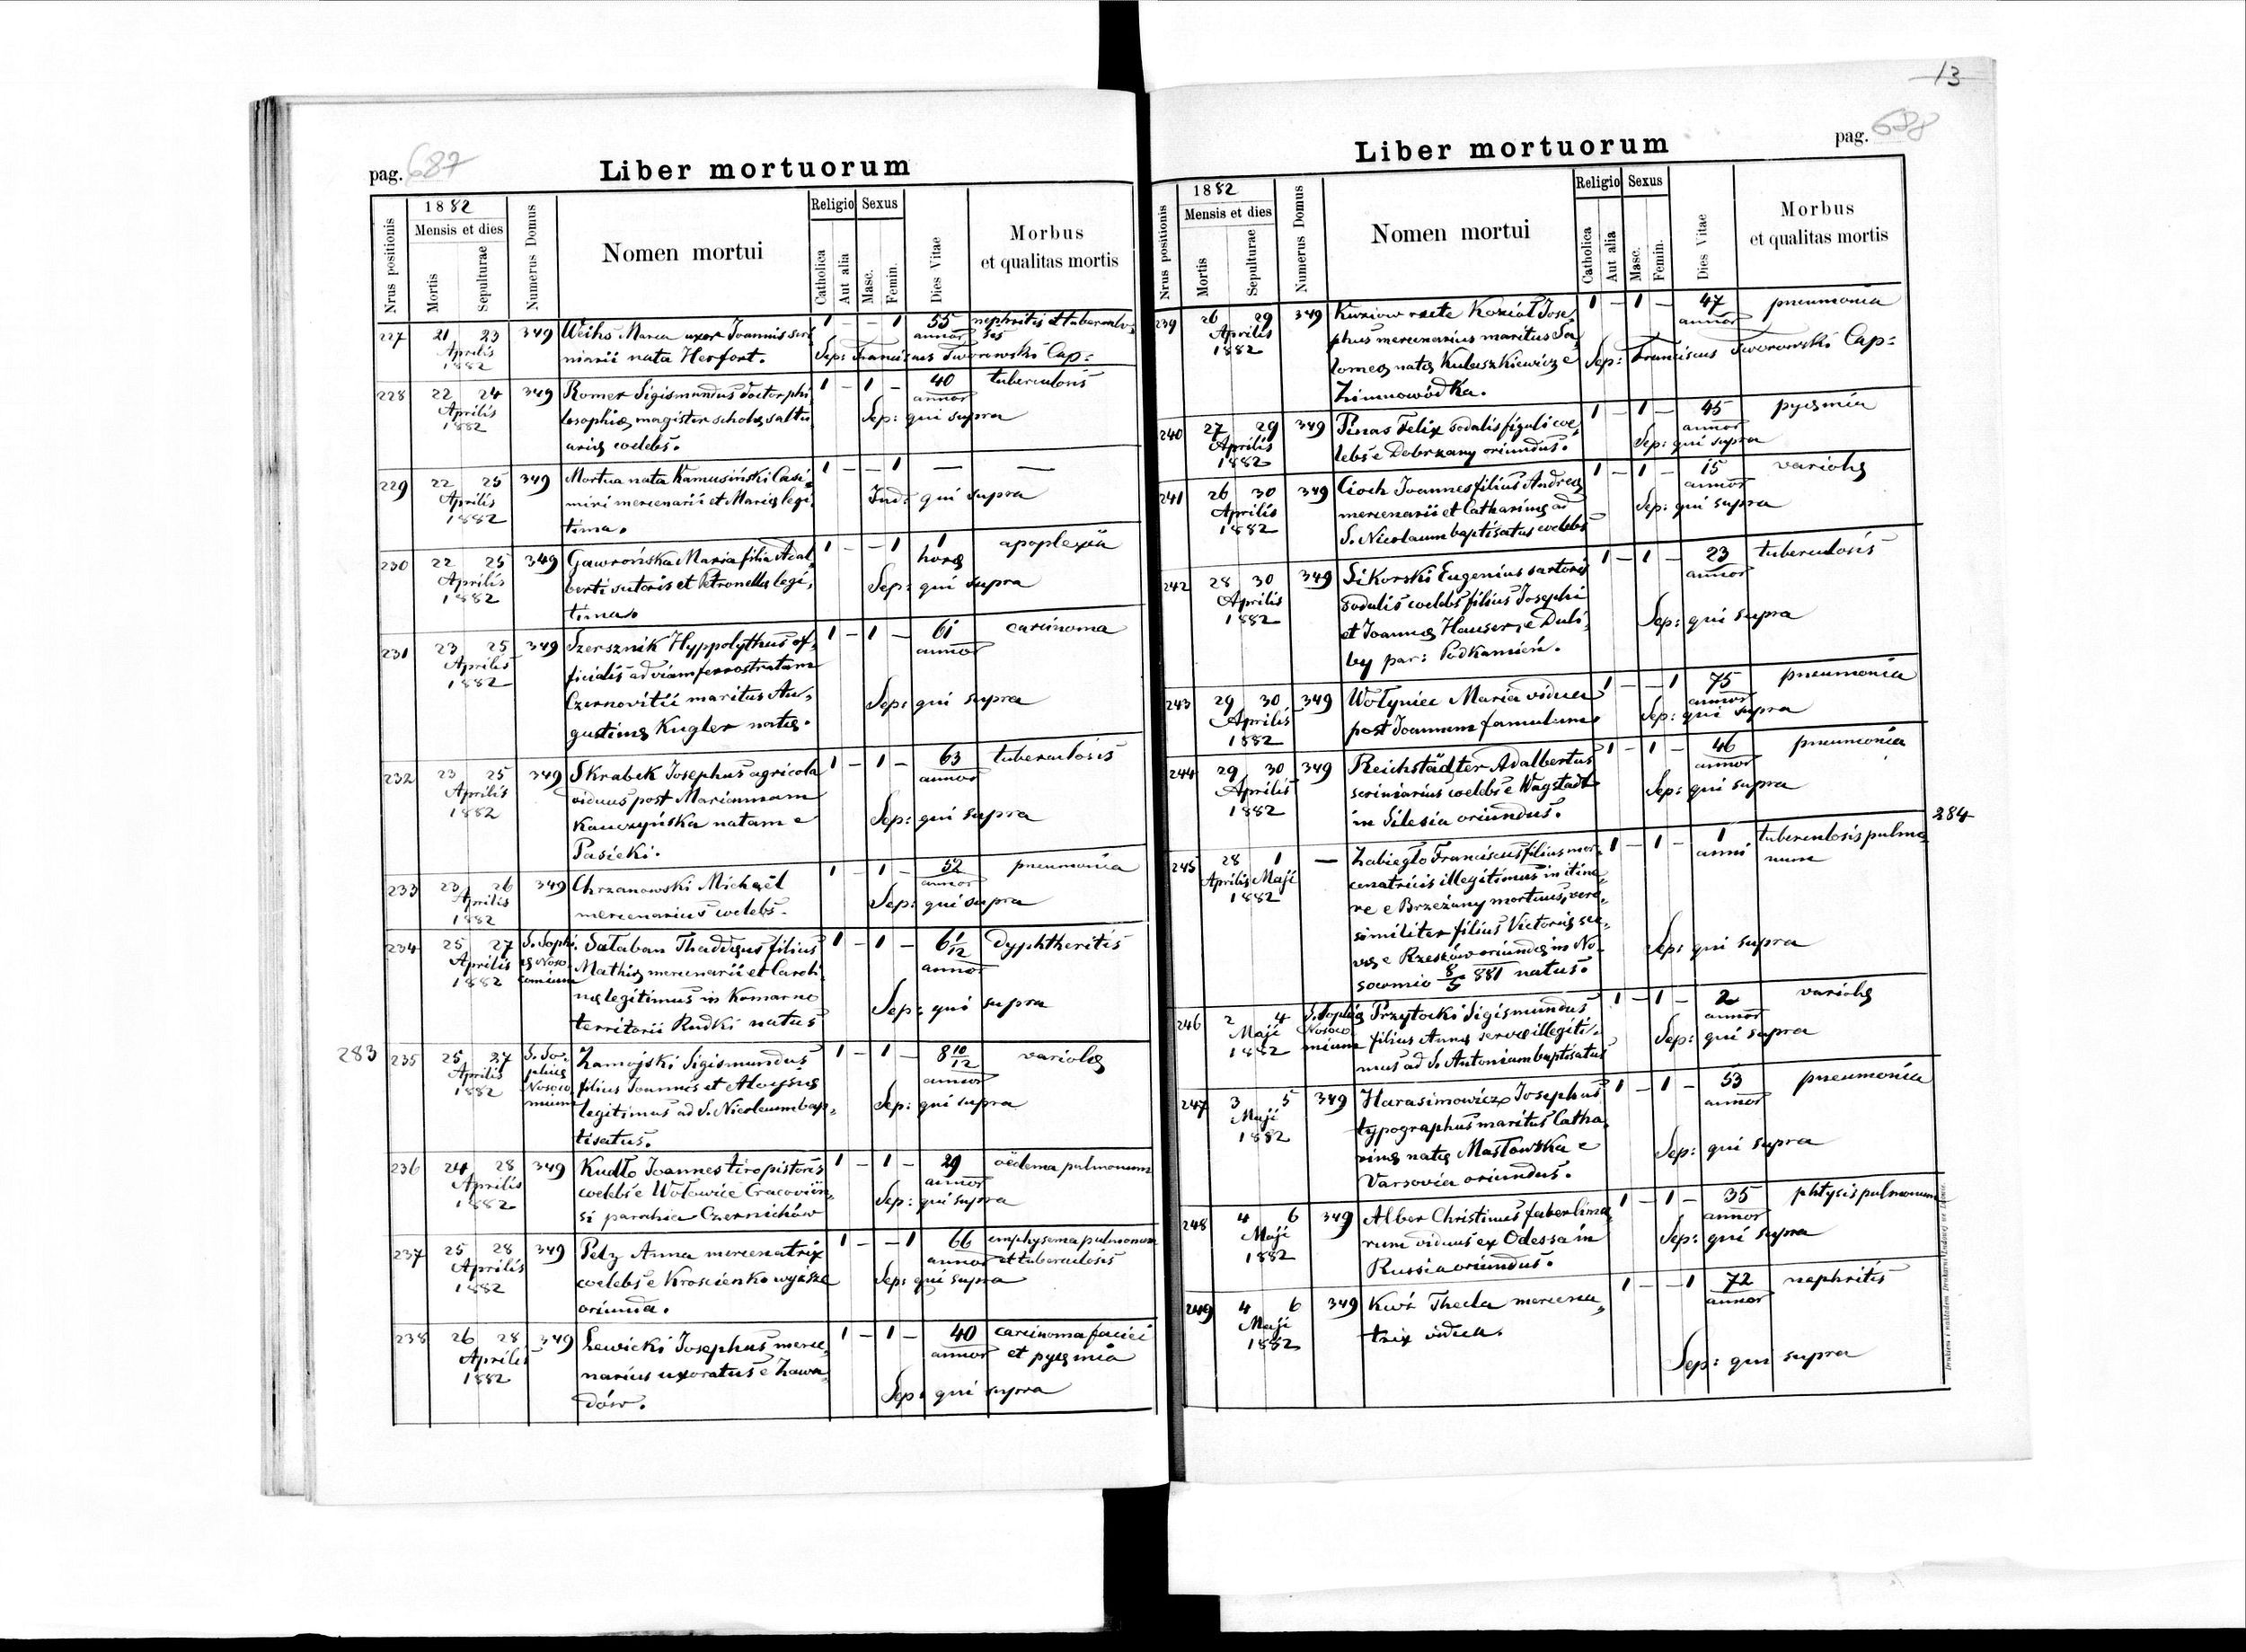 13
pag. 687
Liber mortuorum
Nrus positionis
1882
Mensis et dies
Mortis
Sepulturae
Numerus Domus
Nomen mortui
Religio
Catholica
Aut alia
Sexus
Masc.
Femin.
Dies Vitae
Morbus
et qualitas mortis
227 21 23 349 Weihs Maria uxor Joannis scri= 1 – – 1 55 nephritis et tuberculo=
Aprilis niarii nata Herfort. annor sis
1882 Sep: Franciscus Tworowski Cap:
228 22 24 349 Romer Sigismundus doctor phi 1 – 1 – 40 tuberculosis
Aprilis losophię magister scholę saltu annor
1882 arię coelebs. Sep: qui supra
229 22 25 349 Mortua nata Kamusiński Casi= 1 – – 1 — —
Aprilis miri mercenarii et Marię legi= Ind: qui supra
1882 tima.
230 22 25 349 Gawrońska Maria filia Adal 1 – – 1 1 apoplexia
Aprilis berti sutoris et Petronellę legi, horę
1882 tima. Sep: qui supra
231 23 25 349 Szersznik Hyppolythus of, 1 – 1 – 61 carcinoma
Aprilis ficialis ad viam ferrostratam annor
1882 Czernovitii maritus Au,
gustinę Kugler natę. Sep: qui supra
232 23 25 349 Skrabek Josephus agricola 1 – 1 – 63 tuberculosis
Aprilis viduus post Mariannam annor
1882 Kawczyńska natam e Sep: qui supra
Pasieki.
233 23 26 349 Chrzanowski Michaël 1 – 1 – 52 pneumonia
Aprilis mercenarius coelebs. annor
1882 Sep: qui supra
234 25 27 S. Sophi= Sataban Thaddęus filius 1 – 1 – 6 1/12 dyphtheritis
Aprilis ę Noso Mathię mercenarii et Caroli annor
1882 comium nę legitimus in Komarno Sep: qui supra
territorii Rudki natus
283 235 25 27 S. So. Zamojski Sigismundus 1 – 1 – 8 10/12 variolę
Aprilis phię filius Joannis et Aloysię annor
1882 Nosoco legitimus ad S. Nicolaum bap, Sep: qui supra
mium tisatus.
236 24 28 349 Kudło Joannes tiro pistoris 1 – 1 – 29 oëdema pulmonum
Aprilis coelebs e Wołowice Cracovien, annor
1882 si parohia Czernichów Sep: qui supra
237 25 28 349 Pelz Anna mercenatrix 1 – – 1 66 emphysema pulmonum
Aprilis coelebs e Krościenko wyższe annor et tuberculosis
1882 oriunda. Sep: qui supra
238 26 28 349 Lewicki Josephus merce, 1 – 1 – 40 carcinoma faciei
Aprilis narius uxoratus e Zawa, annor et pyęmia
1882 dów. Sep: qui supra
Liber mortuorum
pag. 688
Nrus positionis
1882
Mensis et dies
Mortis
Sepulturae
Numerus Domus
Nomen mortui
Religio
Catholica
Aut alia
Sexus
Masc.
Femin.
Dies Vitae
Morbus
et qualitas mortis
239 26 29 349 Kuziow recte Kozioł Jose, 1 – 1 – 47 pneumonia
Aprilis phus mercenarius maritus Sa, annor
1882 lomeę natę Kubaszkiewicz e Sep: Franciscus Tworowski Cap:
Zimnowódka.
240 27 29 349 Pinas Felix sodalis figuli coe, 1 – 1 – 45 pyęmia
Aprilis lebs e Dobrzany oriundus. annor
1882 Sep: qui supra
241 26 30 349 Cioch Joannes filius Andreę 1 – 1 – 15 variolę
Aprilis mercenarii et Catharinę ad annor
1882 S. Nicolaum baptisatus coelebs Sep: qui supra
242 28 30 349 Sikorski Eugenius sartoris 1 – 1 – 23 tuberculosis
Aprilis sodalis coelebs filius Josephi annor
1882 et Joannę Hauser, e Duli, Sep: qui supra
by par: Podkamień.
243 29 30 349 Wołyniec Maria vidua 1 – – 1 75 pneumonia
Aprilis post Joannem famulum. annor
1882 Sep: qui supra
244 29 30 349 Reichstädter Adalbertus 1 – 1 – 46 pneumonia
Aprilis scriniarius coelebs e Wagstadt annor
1882 in Silesia oriundus. Sep: qui supra
284
245 28 1 — Zabiegło Franciscus filius mer, 1 – 1 – 1 tuberculosis pulmo,
Aprilis Maji cenatricis illegitimus in itine, anni num
1882 re e Brzeżany mortuus, vere,
similiter filius Victorię ser,
vę e Rzeszów oriundę in No, Sep: qui supra
socomio 8/5 881 natus.
246 2 4 S. Sophię Przytocki Sigismundus 1 – 1 – 2 variolę
Maji Nosoco filius Annę servę illegiti, annor
1882 mium mus ad S. Antonium baptisatus Sep: qui supra
247 3 5 349 Harasimowicz Josephus 1 – 1 – 53 pneumonia
Maji typographus maritus Catha, annor
1882 rinę natę Masłowska e Sep: qui supra
Varsovia oriundus.
248 4 6 349 Alber Christinus faber lima, 1 – 1 – 35 phtysis pulmonum
Maji rum viduus ex Odessa in annor
1882 Russia oriundus. Sep: qui supra
249 4 6 349 Kuś Thecla mercena, 1 – – 1 72 nephritis
Maji trix vidua. annor
1882 Sep: qui supra